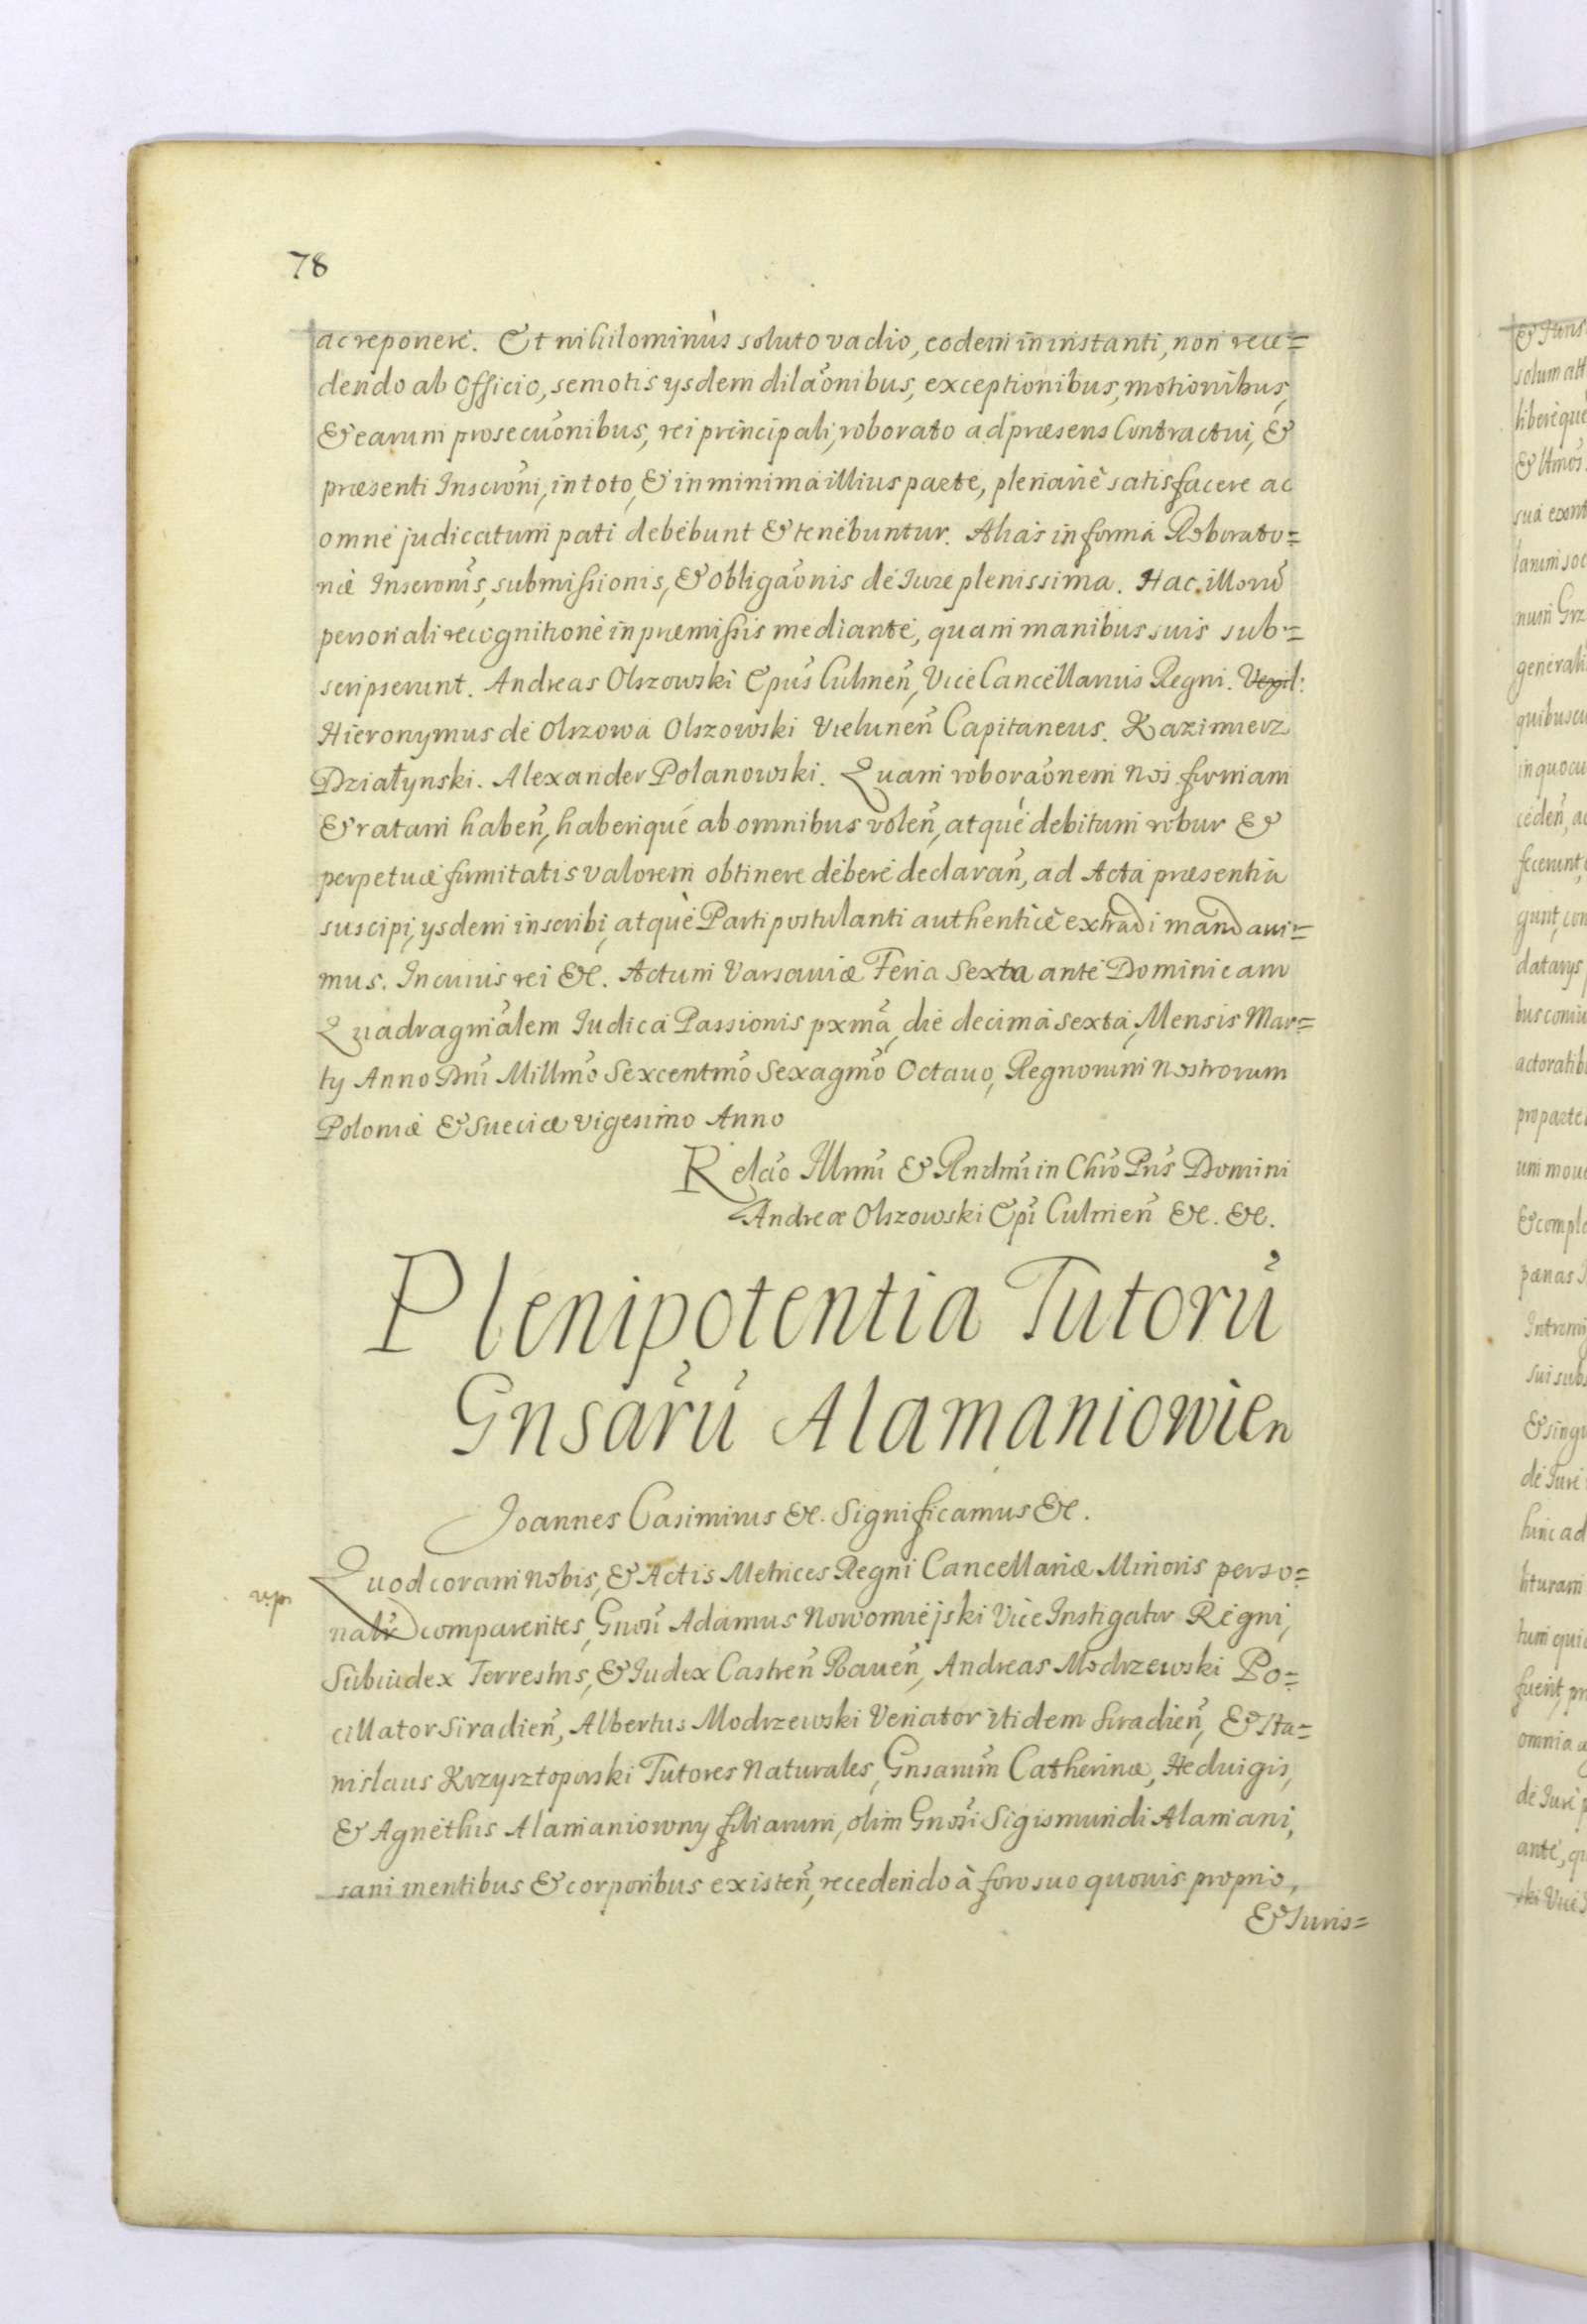 78
ac reponere. Et nihilominùs soluto vadio, eodem in instanti, non rece=
dendo ab Officio, semotis ysdem dilãonibus, exceptionibus, motionibus,
& earum prosecũonibus, rei principali, roborato ad præsens Contractui, &
præsenti Inscrõni, in toto, & in minima illius parte, plenariè satisfacere ac
omne judicatum pati debebunt & tenebuntur. Alias in forma Roborato=
riæ Inscronis, submissionis, & obligãonis de Iure plenissima. Hac illorũ
personali recognitione in præmissis mediante, quam manibus suis sub=
scripserunt. Andreas Olszowski Epũs Culmeñ, Vice Cancellarius Regni.
Hieronymus de Olszowa Olszowski Vieluneñ Capitaneus. Kazimierz
Działynski. Alexander Polanowski. Quam roborãonem Nos firmam
& ratam habeñ, haberiqué ab omnibus voleñ, atquè debitum robur &
perpetuæ firmitatis valorem obtinere debere declarañ, ad Acta præsentia
suscipi, ysdem inscribi, atquè Parti postulanti authenticè extradi mandaui=
mus. In cuius rei &c. Actum Varsauiæ Feria Sexta ante Dominicam
Quadragmãlem Iudica Passionis pxmã, die decima sexta, Mensis Mar=
ty Anno Dni Millmõ Sexcentmõ Sexagmõ Octauo, Regnorum Nostrorum
Poloniæ & Sueciæ vigesimo Anno
Relaõ Illmi & Rndmi in Chrõ Pris Domini
Andreæ Olszowski Epi Culmeñ &c. &c.
Plenipotentia Tutorũ
Gnsarũ Alamaniowien
Joannes Casimirus &c. Significamus &c.
Quod coram Nobis, & Actis Metrices Regni Cancellariæ Minoris perso=
nalr comparentes, Gnosi Adamus Nowomiejski Vice Instigator Regni,
Subiudex Terrestris, & Iudex Castreñ Raueñ, Andreas Modrzewski Po=
cillator Siradieñ, Albertus Modrzewski Venator itidem Siradieñ, & Sta=
nislaus Krzysztoporski Tutores Naturales, Gnsarum Catherinæ, Heduigis,
& Agnethis Alamaniowny filiarum, olim Gnosi Sigismundi Alamani,
sani mentibus & corporibus existeñ, recedendo à foro suo quouis proprio,
& Iuris=